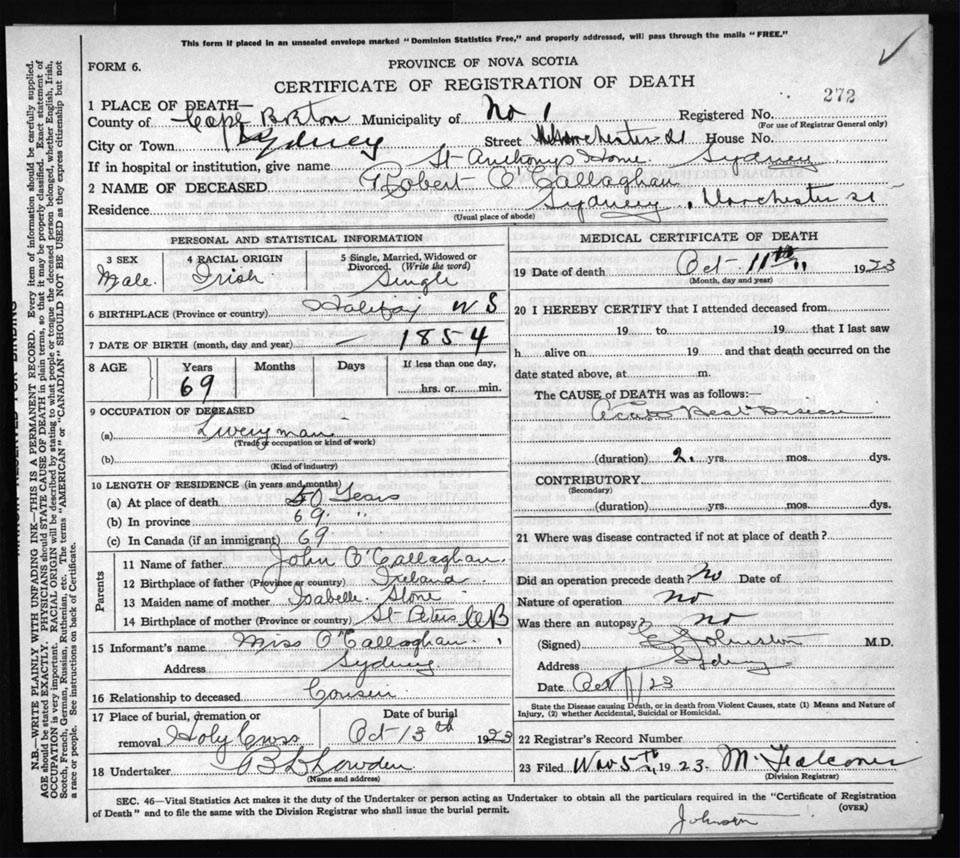 This form if placed in an unsealed envelope marked "Dominion Statistics Free," and properly addressed, will pass through the mails "FREE."
FORM 6.
PROVINCE OF NOVA SCOTIA
CERTIFICATE OF REGISTRATION OF DEATH
272
1 PLACE OF DEATH—
County of Cape Breton Municipality of No 1 Registered No.
(For use of Registrar General only)
City or Town Sydney Street Dorchester St House No.
If in hospital or institution, give name St Anthonys Home Sydney
2 NAME OF DECEASED Robert O'Callaghan
Residence Sydney, Dorchester St
(Usual place of abode)
PERSONAL AND STATISTICAL INFORMATION
3 SEX Male
4 RACIAL ORIGIN Irish
5 Single, Married, Widowed or Divorced. (Write the word) Single
6 BIRTHPLACE (Province or country) Halifax N S
7 DATE OF BIRTH (month, day and year) — 1854
8 AGE Years Months Days If less than one day,
69 hrs. or min.
9 OCCUPATION OF DECEASED
(a) Liveryman
(Trade or occupation or kind of work)
(b)
(Kind of industry)
10 LENGTH OF RESIDENCE (in years and months)
(a) At place of death 50 Years
(b) In province 69 "
(c) In Canada (if an immigrant) 69
Parents
11 Name of father John O'Callaghan
12 Birthplace of father (Province or country) Ireland
13 Maiden name of mother Isabelle Stone
14 Birthplace of mother (Province or country) St Peters CB
15 Informant's name Miss O'Callaghan
Address Sydney
16 Relationship to deceased Cousin
17 Place of burial, cremation or removal Holy Cross
Date of burial Oct 13th 1923
18 Undertaker
(Name and address)
MEDICAL CERTIFICATE OF DEATH
19 Date of death Oct 11th 11 1923
(Month, day and year)
20 I HEREBY CERTIFY that I attended deceased from
19 to 19 that I last saw
h alive on 19 and that death occurred on the
date stated above, at m.
The CAUSE of DEATH was as follows:—
Disease
(duration) 2 yrs. mos. dys.
CONTRIBUTORY
(Secondary)
(duration) yrs. mos. dys.
21 Where was disease contracted if not at place of death?
Did an operation precede death? No Date of
Nature of operation No
Was there an autopsy? no
(Signed) Johnston M.D.
Address Sydney
Date Oct 11 23
State the Disease causing Death, or in death from Violent Causes, state (1) Means and Nature of Injury, (2) whether Accidental, Suicidal or Homicidal.
22 Registrar's Record Number
23 Filed Nov 5th, 1923. M. Falconer
(Division Registrar)
SEC. 46—Vital Statistics Act makes it the duty of the Undertaker or person acting as Undertaker to obtain all the particulars required in the "Certificate of Registration
of Death" and to file the same with the Division Registrar who shall issue the burial permit.
(OVER)
Johnston
N.B.—WRITE PLAINLY WITH UNFADING INK—THIS IS A PERMANENT RECORD. Every item of information should be carefully supplied.
AGE should be stated EXACTLY. PHYSICIANS should STATE CAUSE OF DEATH in plain terms, so that it may be properly classified. Exact statement of
OCCUPATION is very important. RACIAL ORIGIN will be described by stating to what people or tongue the deceased person belonged, whether English, Irish,
Scotch, French, German, Russian, Ruthenian, etc. The terms "AMERICAN" or "CANADIAN" SHOULD NOT BE USED as they express citizenship but not
a race or people. See instructions on back of Certificate.